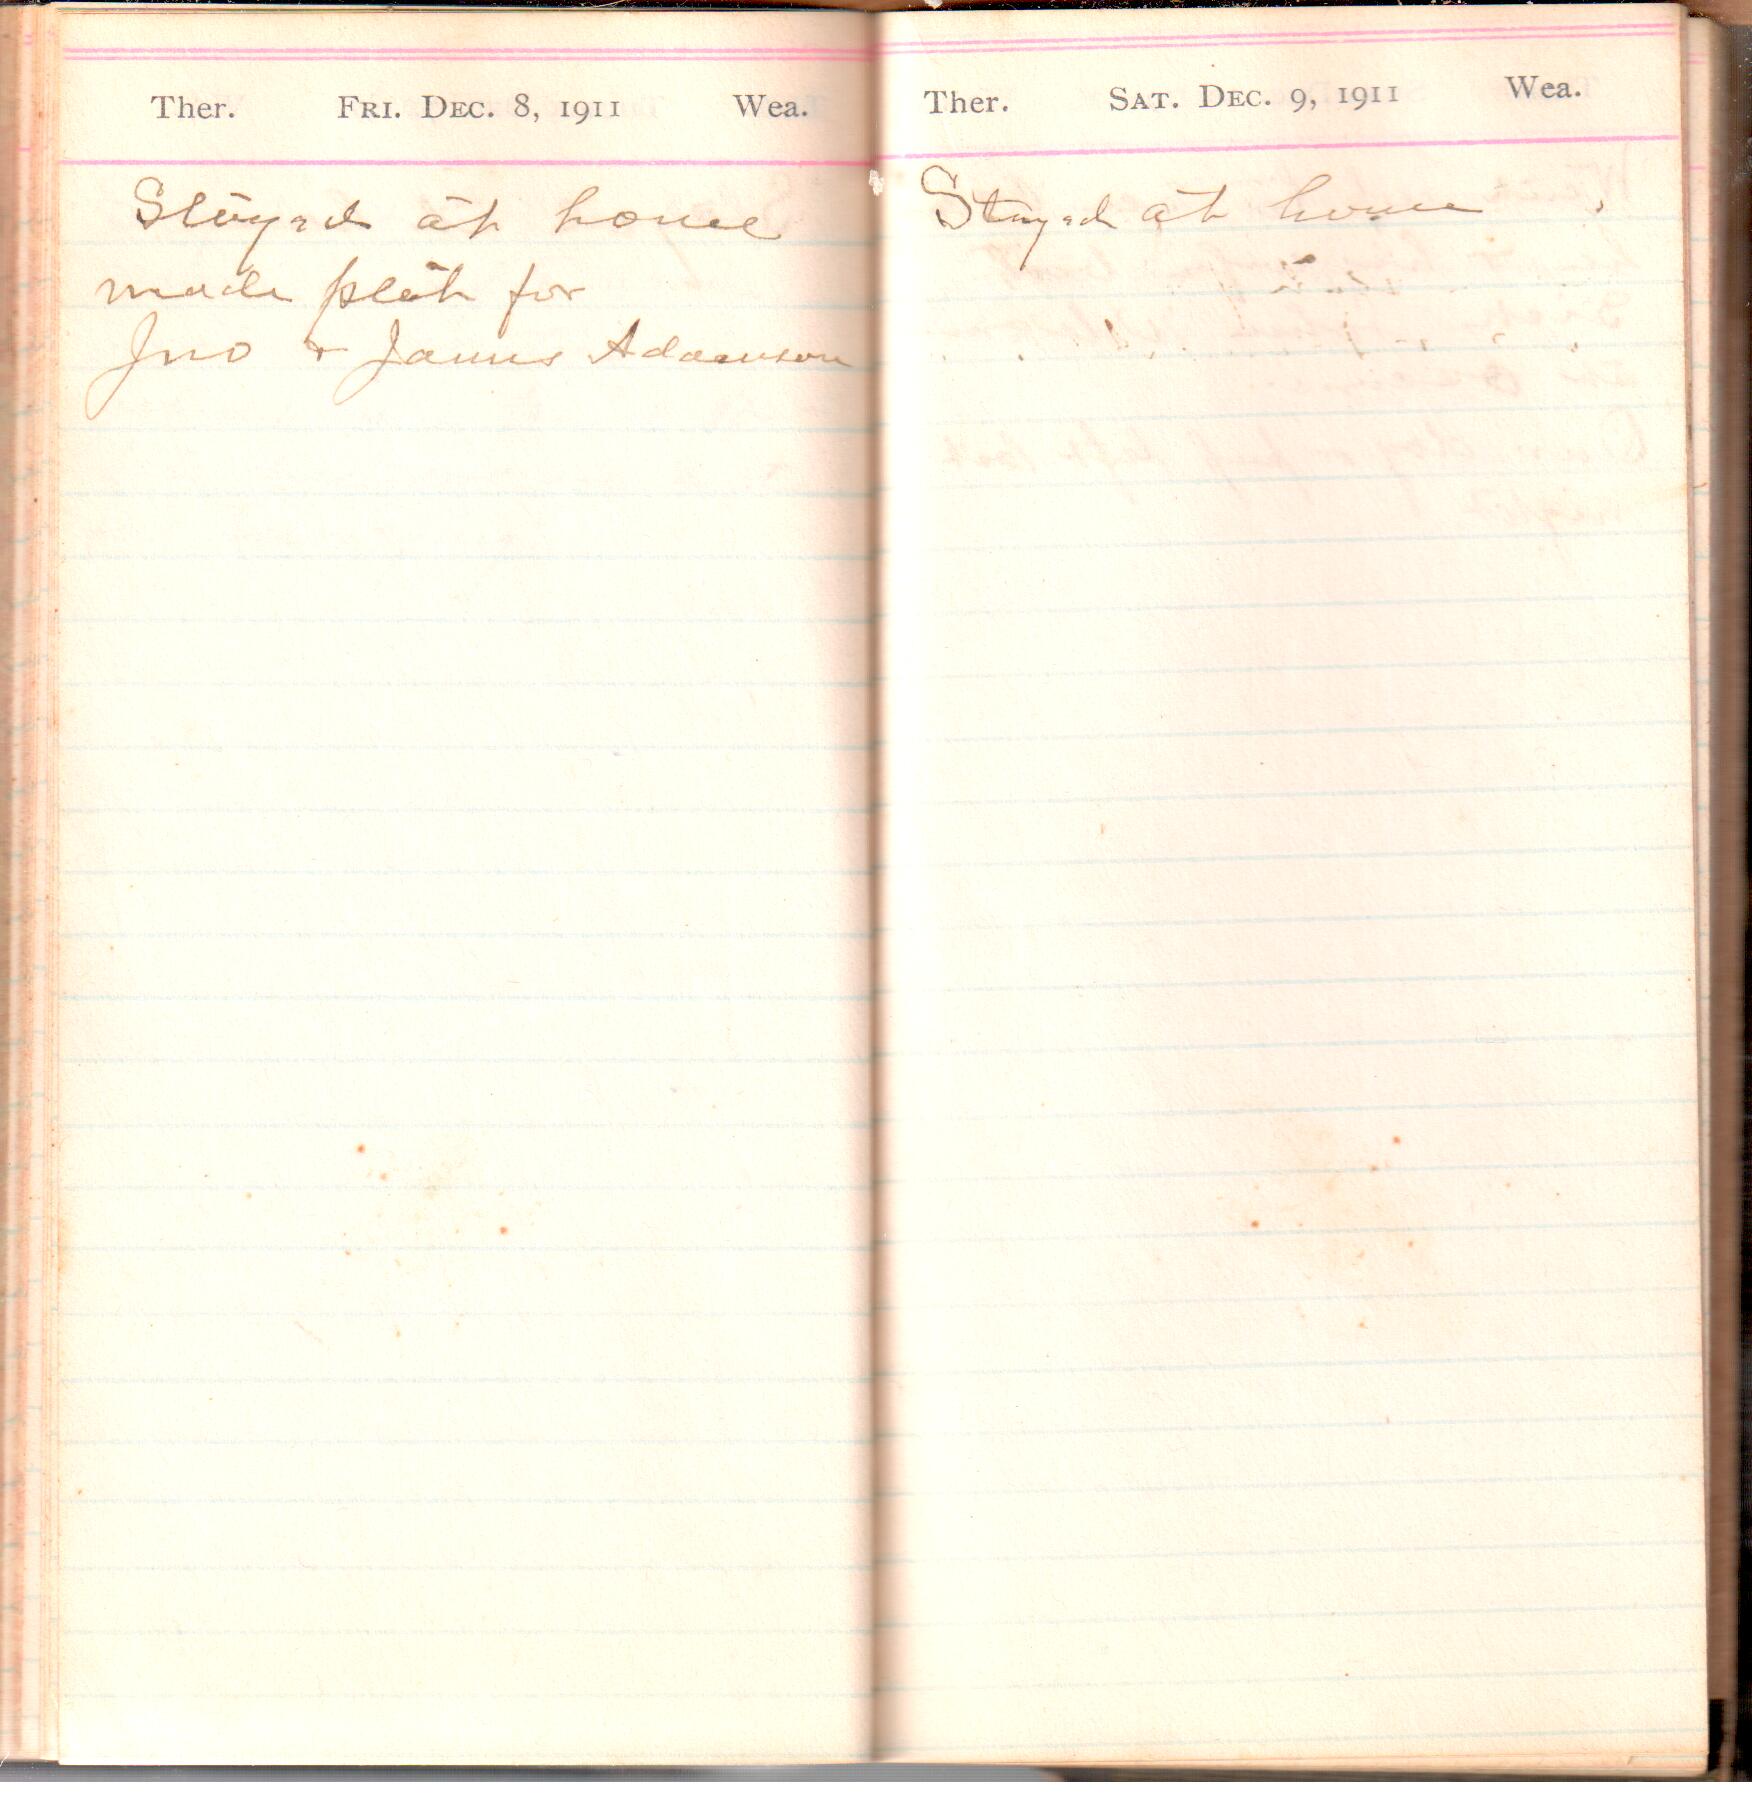 Ther. Fri. Dec. 8, 1911 Wea.
Stayed at home
made plat for
Jno + James Adamson
Ther. Sat. Dec. 9, 1911 Wea.
Stayed at home